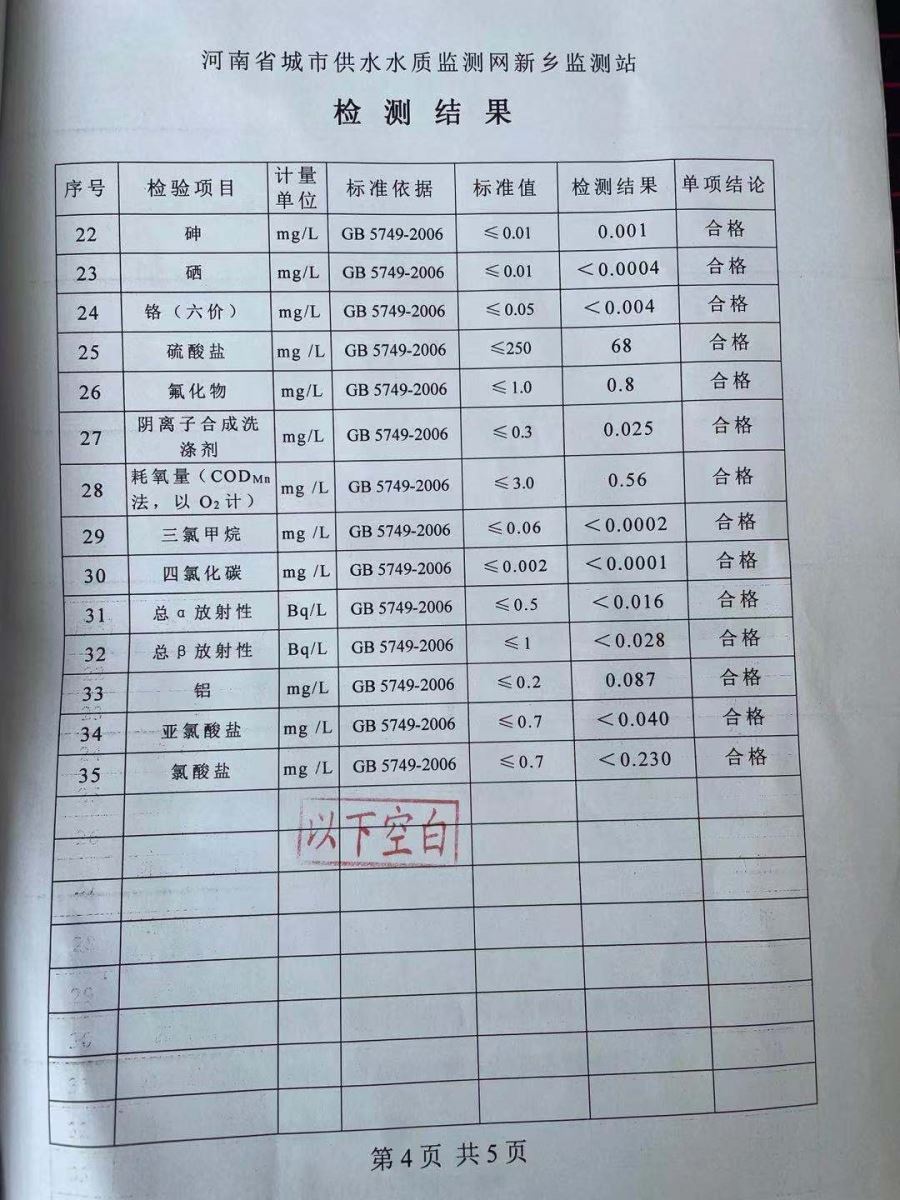 河南省城市供水水质监测网新乡监测站
检测结果
序号 检验项目 计量单位 标准依据 标准值 检测结果 单项结论
22 砷 mg/L GB 5749-2006 ≤0.01 0.001 合格
23 硒 mg/L GB 5749-2006 ≤0.01 <0.0004 合格
24 铬（六价） mg/L GB 5749-2006 ≤0.05 <0.004 合格
25 硫酸盐 mg /L GB 5749-2006 ≤250 68 合格
26 氟化物 mg/L GB 5749-2006 ≤1.0 0.8 合格
27 阴离子合成洗涤剂 mg/L GB 5749-2006 ≤0.3 0.025 合格
28 耗氧量（CODMn法，以 O2 计） mg /L GB 5749-2006 ≤3.0 0.56 合格
29 三氯甲烷 mg /L GB 5749-2006 ≤0.06 <0.0002 合格
30 四氯化碳 mg /L GB 5749-2006 ≤0.002 <0.0001 合格
31 总 α 放射性 Bq/L GB 5749-2006 ≤0.5 <0.016 合格
32 总 β 放射性 Bq/L GB 5749-2006 ≤1 <0.028 合格
33 铝 mg/L GB 5749-2006 ≤0.2 0.087 合格
34 亚氯酸盐 mg /L GB 5749-2006 ≤0.7 <0.040 合格
35 氯酸盐 mg /L GB 5749-2006 ≤0.7 <0.230 合格
以下空白
第4页 共5页